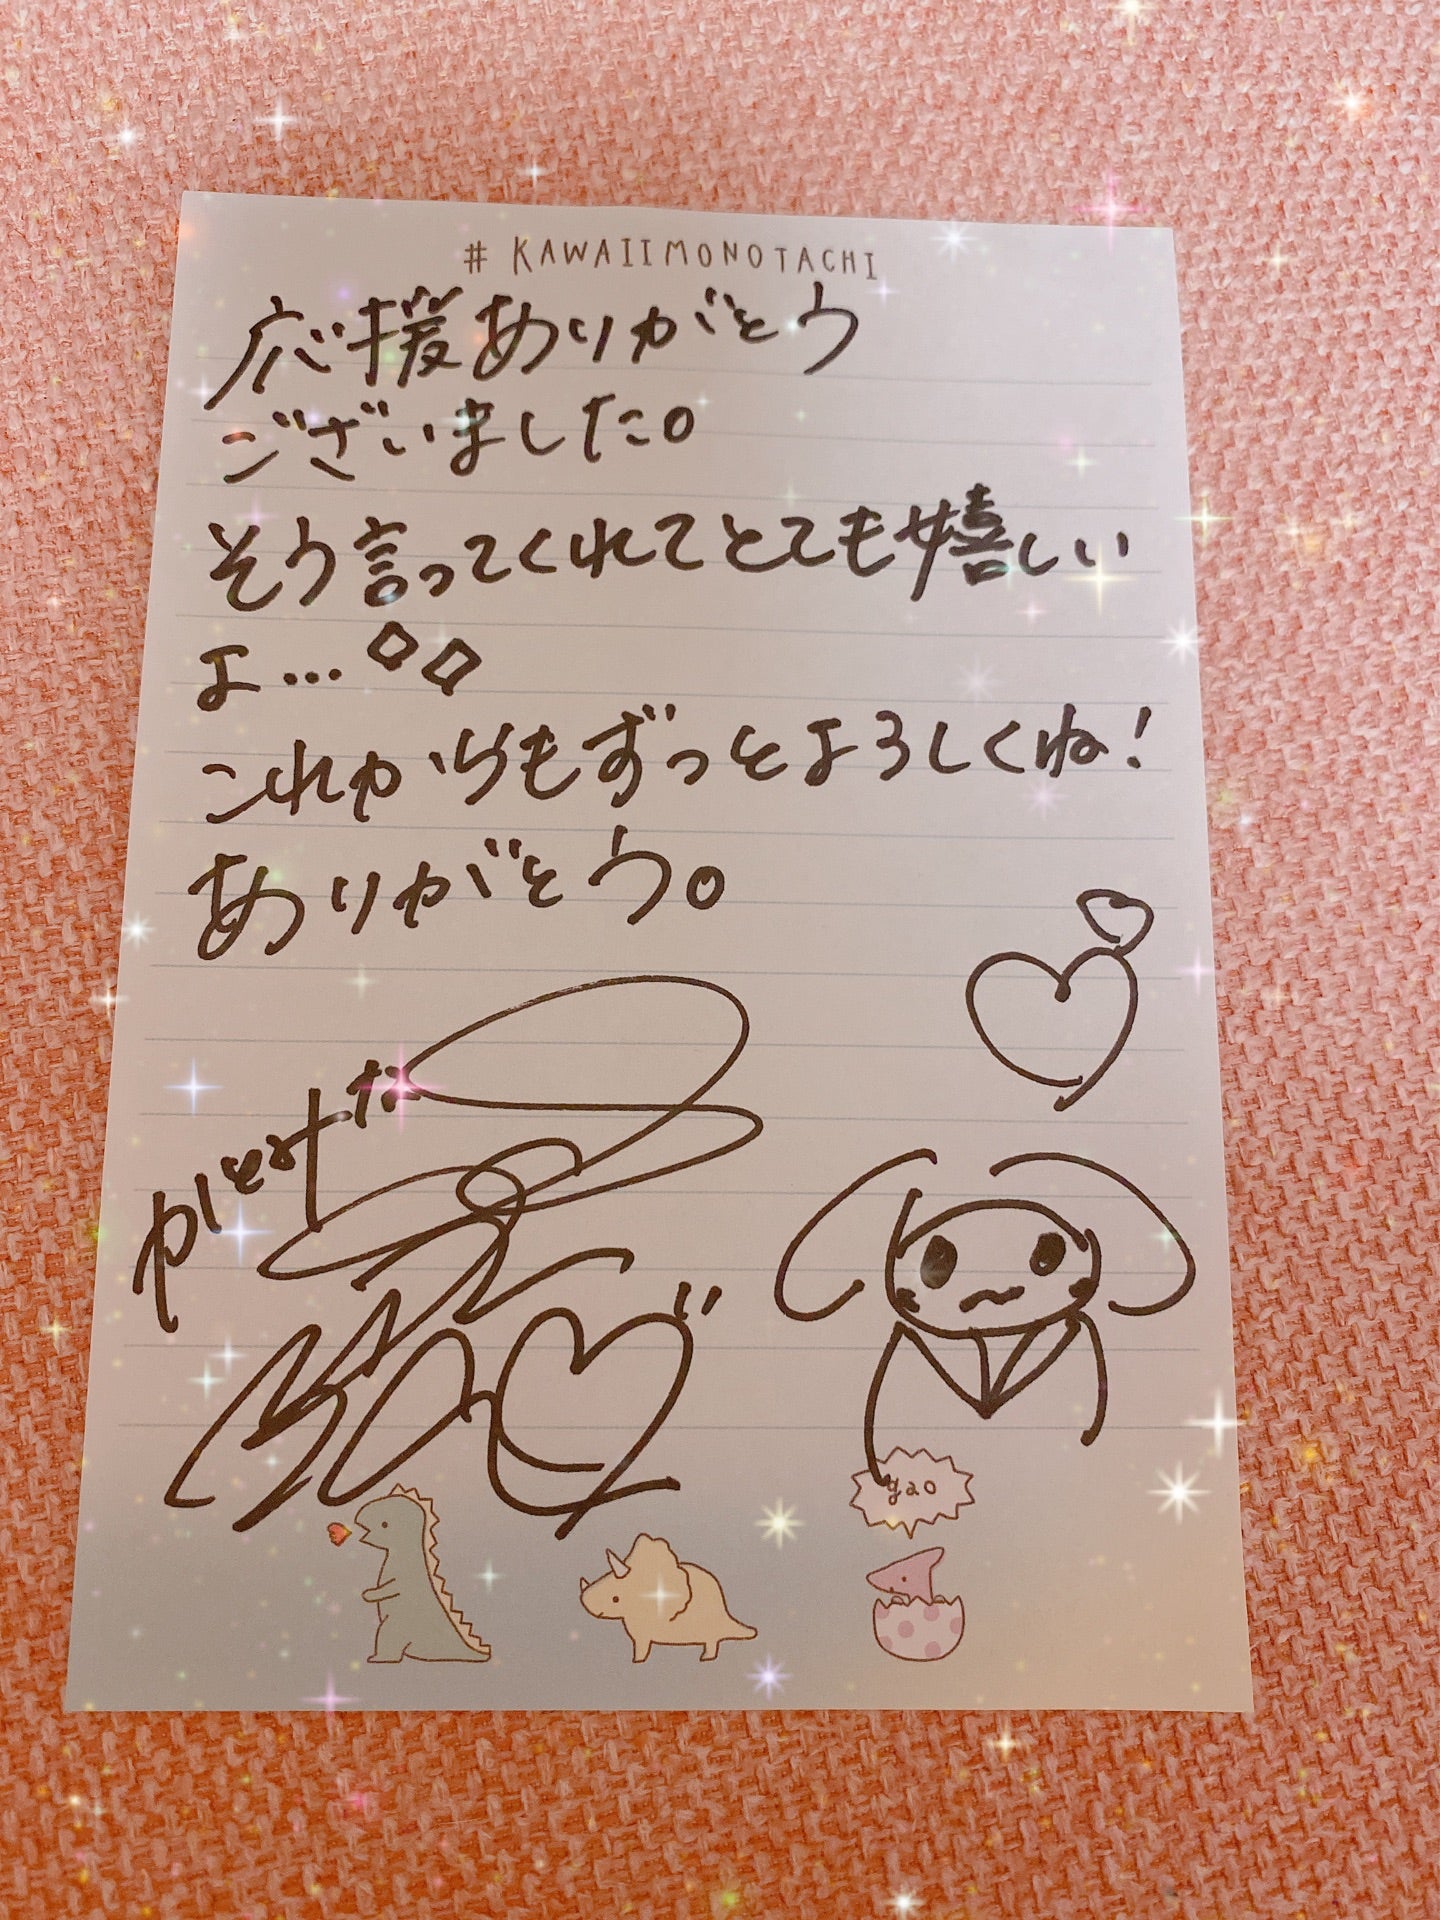 # KAWAIIMONOTACHI
応援ありがとう
ございました。
そう言ってくれてとても嬉しい
よ...◇◇
これからもずっとよろしくね!
ありがとう。
gao